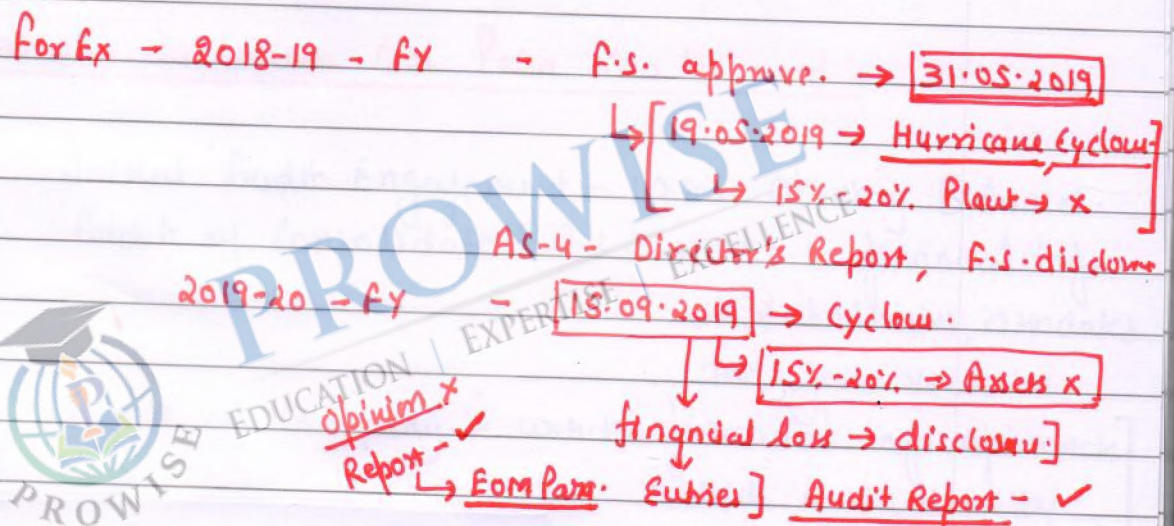 for Ex - 2018-19 - FY - F.S. approve. → 31.05.2019
↳ [19.05.2019 → Hurricane, Cyclone]
↳ 15%-20% Plant → x
AS-4 - Director's Report, F.S. disclosure
2019-20 - FY - 15.09.2019 → Cyclone.
↳ 15%-20% → Assets x
Opinion x
financial loss → disclosure]
Report - ✓
↳ EOM Para. Entries] Audit Report - ✓
PROWISE
EDUCATION | EXPERTISE | EXCELLENCE
PROWISE